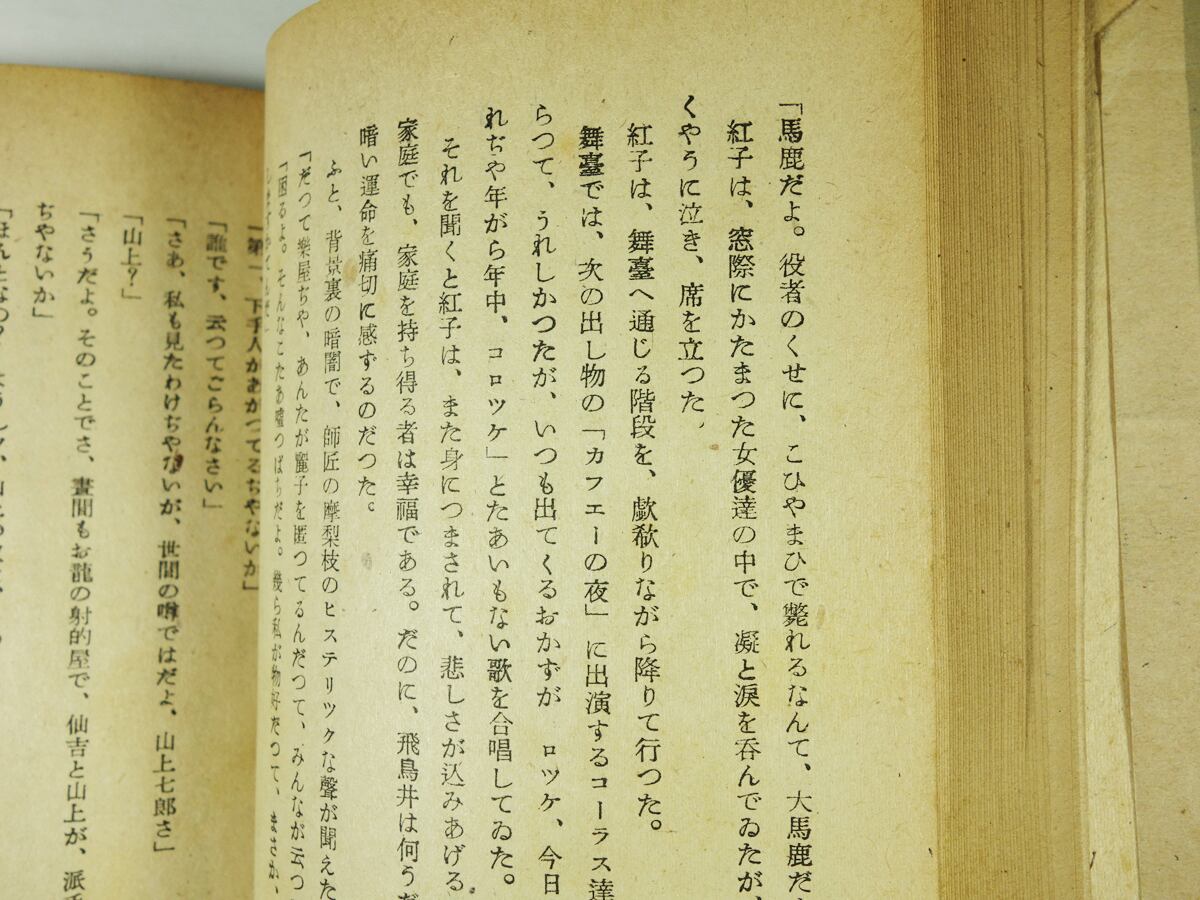 「馬鹿だよ。役者のくせに、こひやまひで斃れるなんて、大馬鹿だ
紅子は、窓際にかたまつた女優達の中で、凝と涙を呑んでゐたが、
くやうに泣き、席を立つた、
紅子は、舞臺へ通じる階段を、歔欷りながら降りて行つた。
舞臺では、次の出し物の「カフエーの夜」に出演するコーラス達
らつて、うれしかつたが、いつも出てくるおかずが　ロツケ、今日
れぢや年がら年中、コロツケ」とたあいもない歌を合唱してゐた。
それを聞くと紅子は、また身につまされて、悲しさが込みあげる
家庭でも、家庭を持ち得る者は幸福である。だのに、飛鳥井は何うだ
暗い運命を痛切に感ずるのだつた。
ふと、背景裏の暗闇で、師匠の摩梨枝のヒステリツクな聲が聞えた
「だつて樂屋ぢや、あんたが麗子を匿つてるんだつて、みんなが云つ
「困るよ。そんなこたあ嘘つぱちだよ。幾ら私が物好だつて、まさか、
「第一、下手人があがつてるぢやないか」
「誰です、云つてごらんなさい」
「さあ、私も見たわけぢやないが、世間の噂ではだよ、山上七郎さ」
「山上？」
「さうだよ。そのことでさ、晝間もお龍の射的屋で、仙吉と山上が、派
ぢやないか」
「ほんとなの？